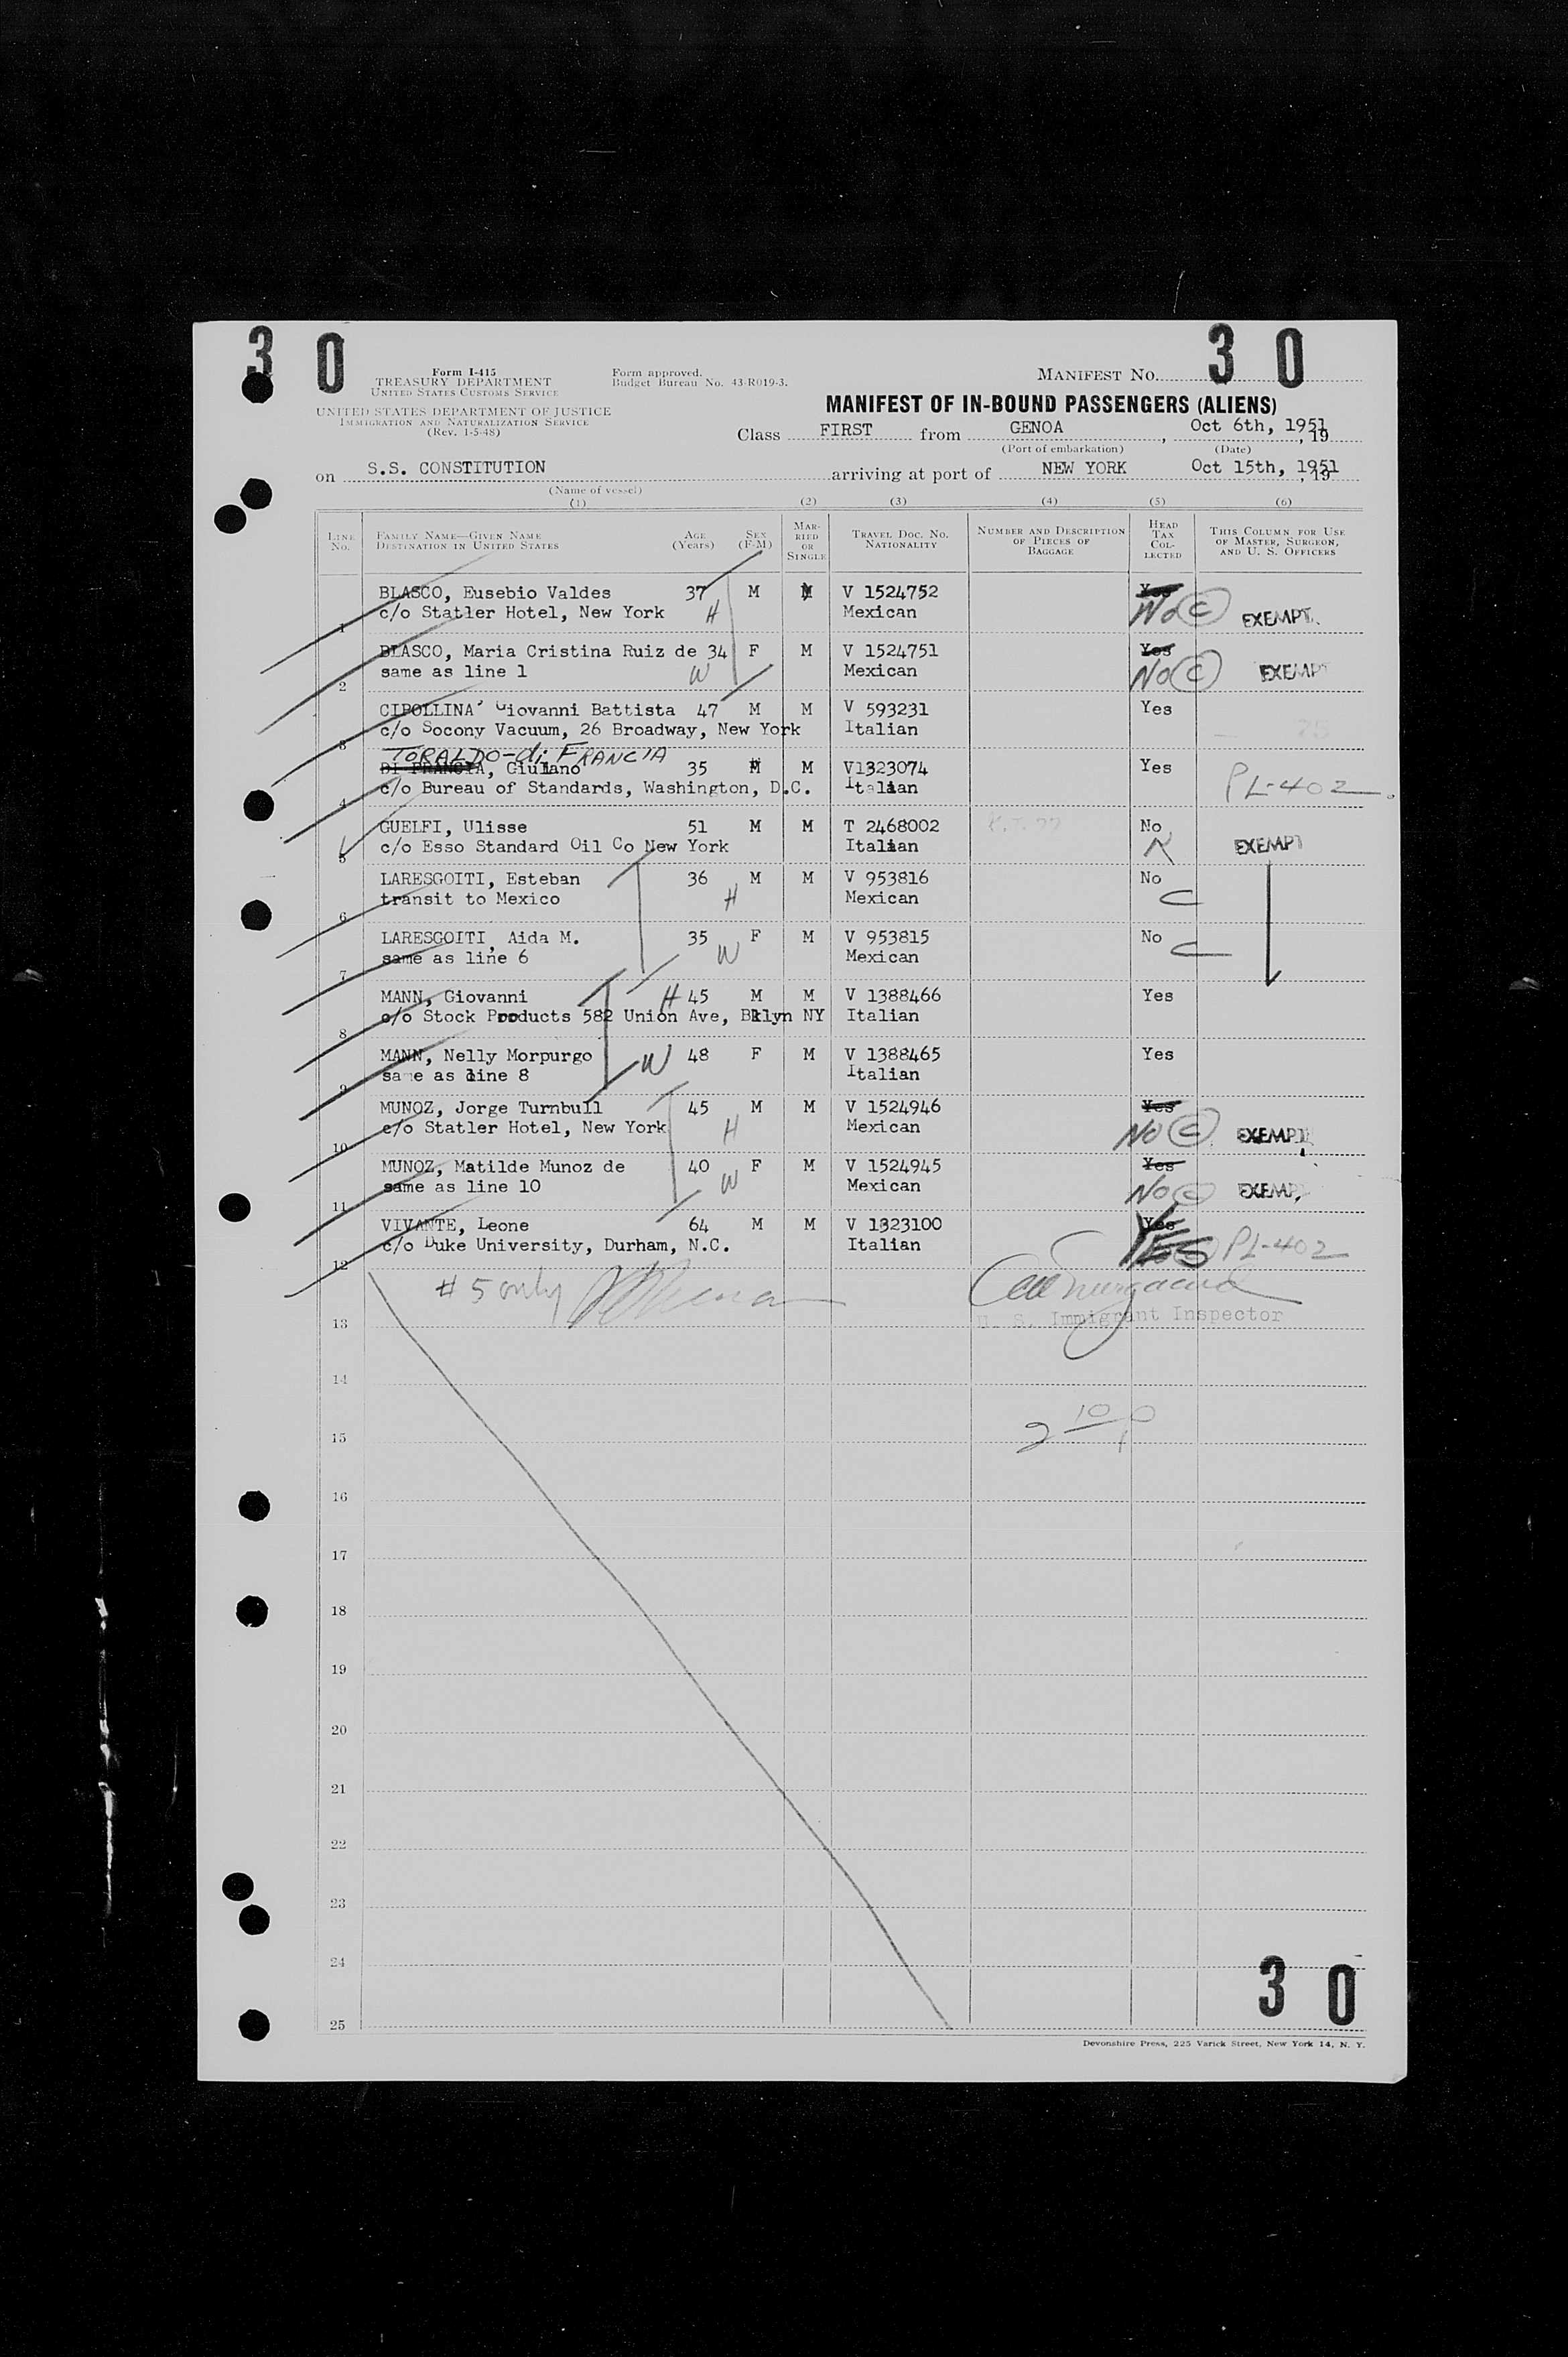 30 30
Form I-415
TREASURY DEPARTMENT
UNITED STATES CUSTOMS SERVICE
UNITED STATES DEPARTMENT OF JUSTICE
IMMIGRATION AND NATURALIZATION SERVICE
(Rev. 1-5-48)
Form approved.
Budget Bureau No. 43-R019-3.
MANIFEST No.
MANIFEST OF IN-BOUND PASSENGERS (ALIENS)
Class FIRST from GENOA, Oct 6th, 1951, 19
(Port of embarkation) (Date)
on S.S. CONSTITUTION arriving at port of NEW YORK Oct 15th, 1951, 19
(Name of vessel)
(1) (2) (3) (4) (5) (6)
LINE No. FAMILY NAME—GIVEN NAME DESTINATION IN UNITED STATES AGE (Years) SEX (F-M) MARRIED OR SINGLE TRAVEL DOC. NO. NATIONALITY NUMBER AND DESCRIPTION OF PIECES OF BAGGAGE HEAD TAX COLLECTED THIS COLUMN FOR USE OF MASTER, SURGEON, AND U. S. OFFICERS
BLASCO, Eusebio Valdes 37 M M V 1524752 Yes
1 c/o Statler Hotel, New York H Mexican No C EXEMPT.
BLASCO, Maria Cristina Ruiz de 34 F M V 1524751 Yes
2 same as line 1 W Mexican No C EXEMPT
CIPOLLINA' Giovanni Battista 47 M M V 593231 Yes
3 c/o Socony Vacuum, 26 Broadway, New York Italian
TORALDO-di FRANCIA
DI FRANCIA, Giuliano 35 M M V1323074 Yes
4 c/o Bureau of Standards, Washington, D.C. Italian PL-402
GUELFI, Ulisse 51 M M T 2468002 No
5 c/o Esso Standard Oil Co New York Italian EXEMPT
LARESGOITI, Esteban 36 M M V 953816 No
6 transit to Mexico H Mexican C
LARESGOITI, Aida M. 35 F M V 953815 No
7 same as line 6 W Mexican C
MANN, Giovanni H 45 M M V 1388466 Yes
8 c/o Stock Products 582 Union Ave, Bklyn NY Italian
MANN, Nelly Morpurgo W 48 F M V 1388465 Yes
9 same as line 8 Italian
MUNOZ, Jorge Turnbull 45 M M V 1524946 Yes
10 c/o Statler Hotel, New York H Mexican NO C EXEMPT
MUNOZ, Matilde Munoz de 40 F M V 1524945 Yes
11 same as line 10 W Mexican No C EXEMPT
VIVANTE, Leone 64 M M V 1323100 Yes
12 c/o Duke University, Durham, N.C. Italian YES PL-402
# 5 only
13 U. S. Immigrant Inspector
14
15
16
17
18
19
20
21
22
23
24
25
30
Devonshire Press, 225 Varick Street, New York 14, N. Y.